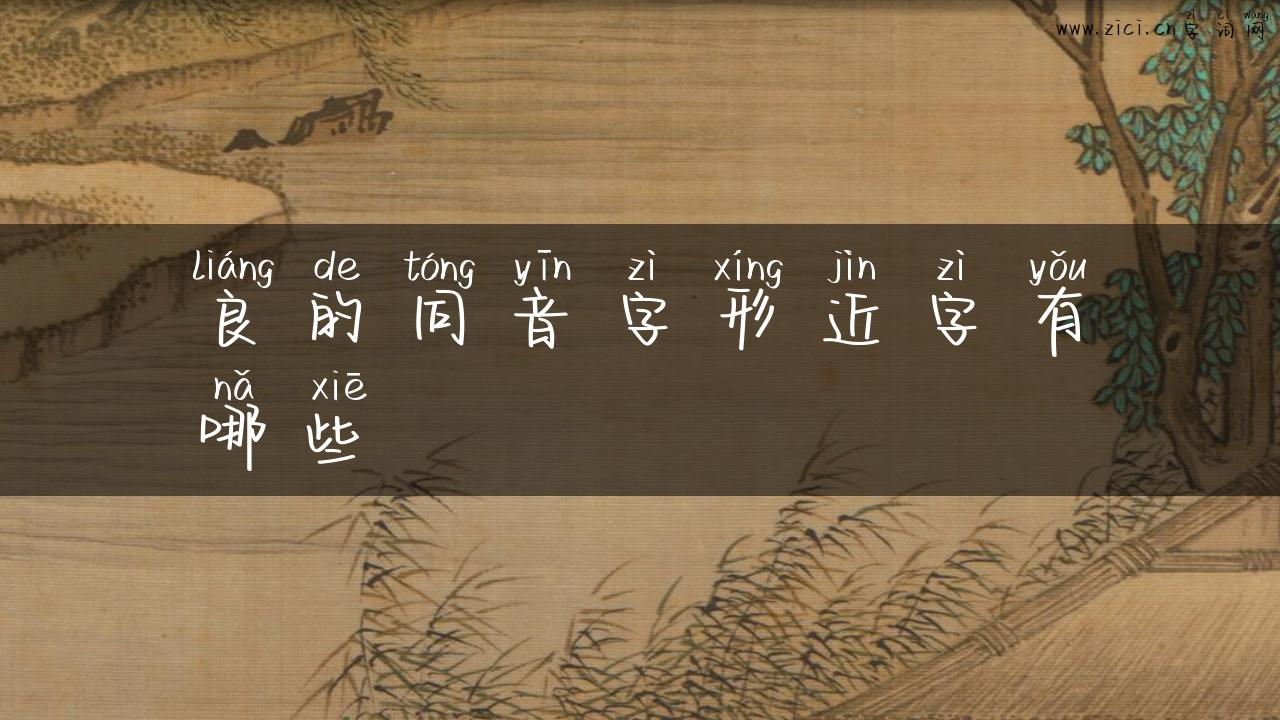 zì cí wǎng
www.zici.cn字词网
liáng de tóng yīn zì xíng jìn zì yǒu
良的同音字形近字有
nǎ xiē
哪些